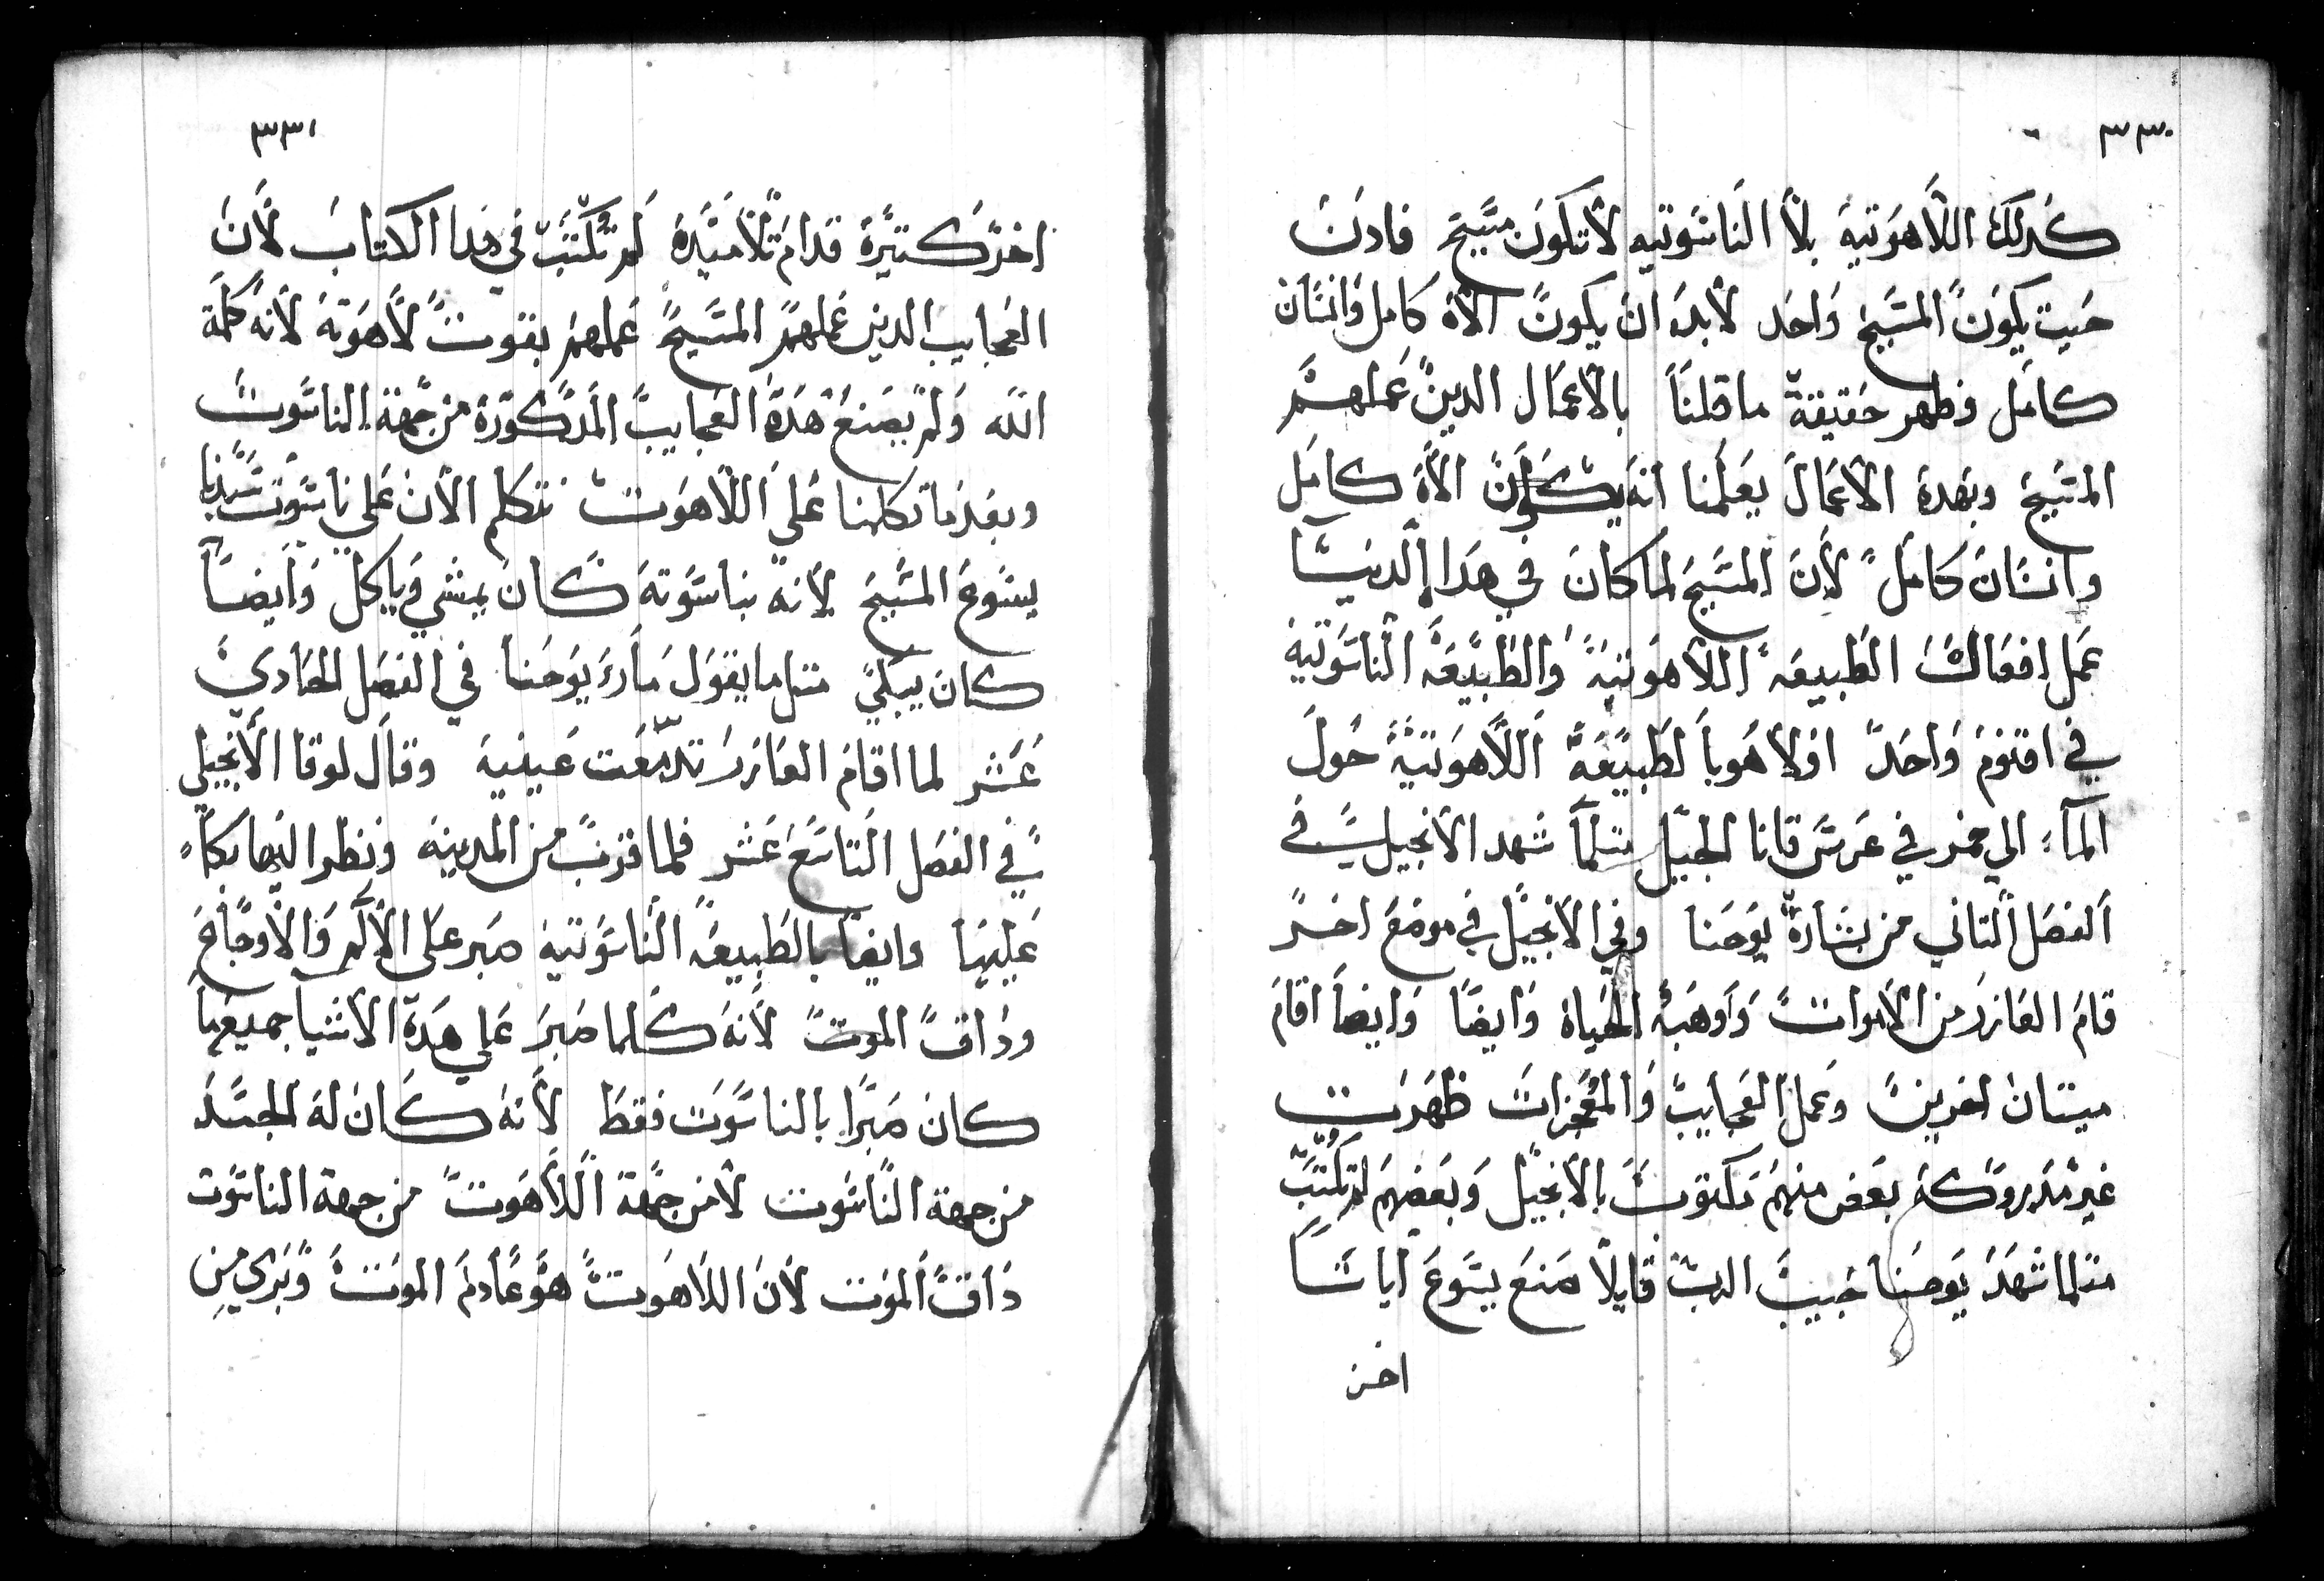 ٣٣٠
كدلك اللاهوتية بلا الناسوتيه لا تكون مسيح فادن
حيت يكون المسيح واحد لابد ان يكون الاه كامل وانسان
كامل وظهر حقيقة ما قلنا بالاعمال الدين عملهم
المسيح وبهدة الاعمال يعلمنا انه يكون الاه كامل
وانسان كامل لان المسيح لما كان في هدا الدنيا
عمل افعال الطبيعه اللاهوتية والطبيعه الناسوتية
في اقنوم واحد اولا هو بالطبيعة اللاهوتية حول
المآء الي خمر في عرس قانا الجليل متلما شهد الانجيل في
الفصل التاني من بشارة يوحنا وفي الانجيل في موضع اخر
قام العازر من الاموات واوهبه الحياة وايضا وايضا اقام
ميتان اخرين وعمل العجايب والمعجزات ظهرت
غير مدروكة بعض منهم مكتوب بالانجيل وبعضهم لم تكتب
متلما شهد يوحنا حبيب الرب قايلا صنع يسوع اياتا
اخر
٣٣١
اخر كتيرة قدام تلاميدة لم تكتب في هدا الكتاب لان
العجايب الدين عملهم المسيح عملهم بقوت لاهوته لانه كلمة
الله ولم يصنع هدة العجايب المدكورة من جهة الناسوت
وبعد ما تكلمنا على اللاهوت نتكلم الان على ناسوت سيدنا
يسوع المسيح لانه بناسوته كان يمشي وياكل وايضا
كان يبكي متل ما يقول مارء يوحنا في الفصل الحادي
عشر لما اقام العازر تدمعت عينية وقال لوقا الانجيلي
في الفصل التاسع عشر فلما قرب من المدينه ونظر اليها بكاء
عليها وايضا بالطبيعه الناسوتية صبر على الالم والاوجاع
وداق الموت لانه كلما صبر على هدة الاشيا جميعها
كان صبرا بالناسوت فقط لانه كان له الجسد
من جهة الناسوت لا من جهة اللاهوت من جهة الناسوت
داق الموت لان اللاهوت هو عادم الموت وبري من